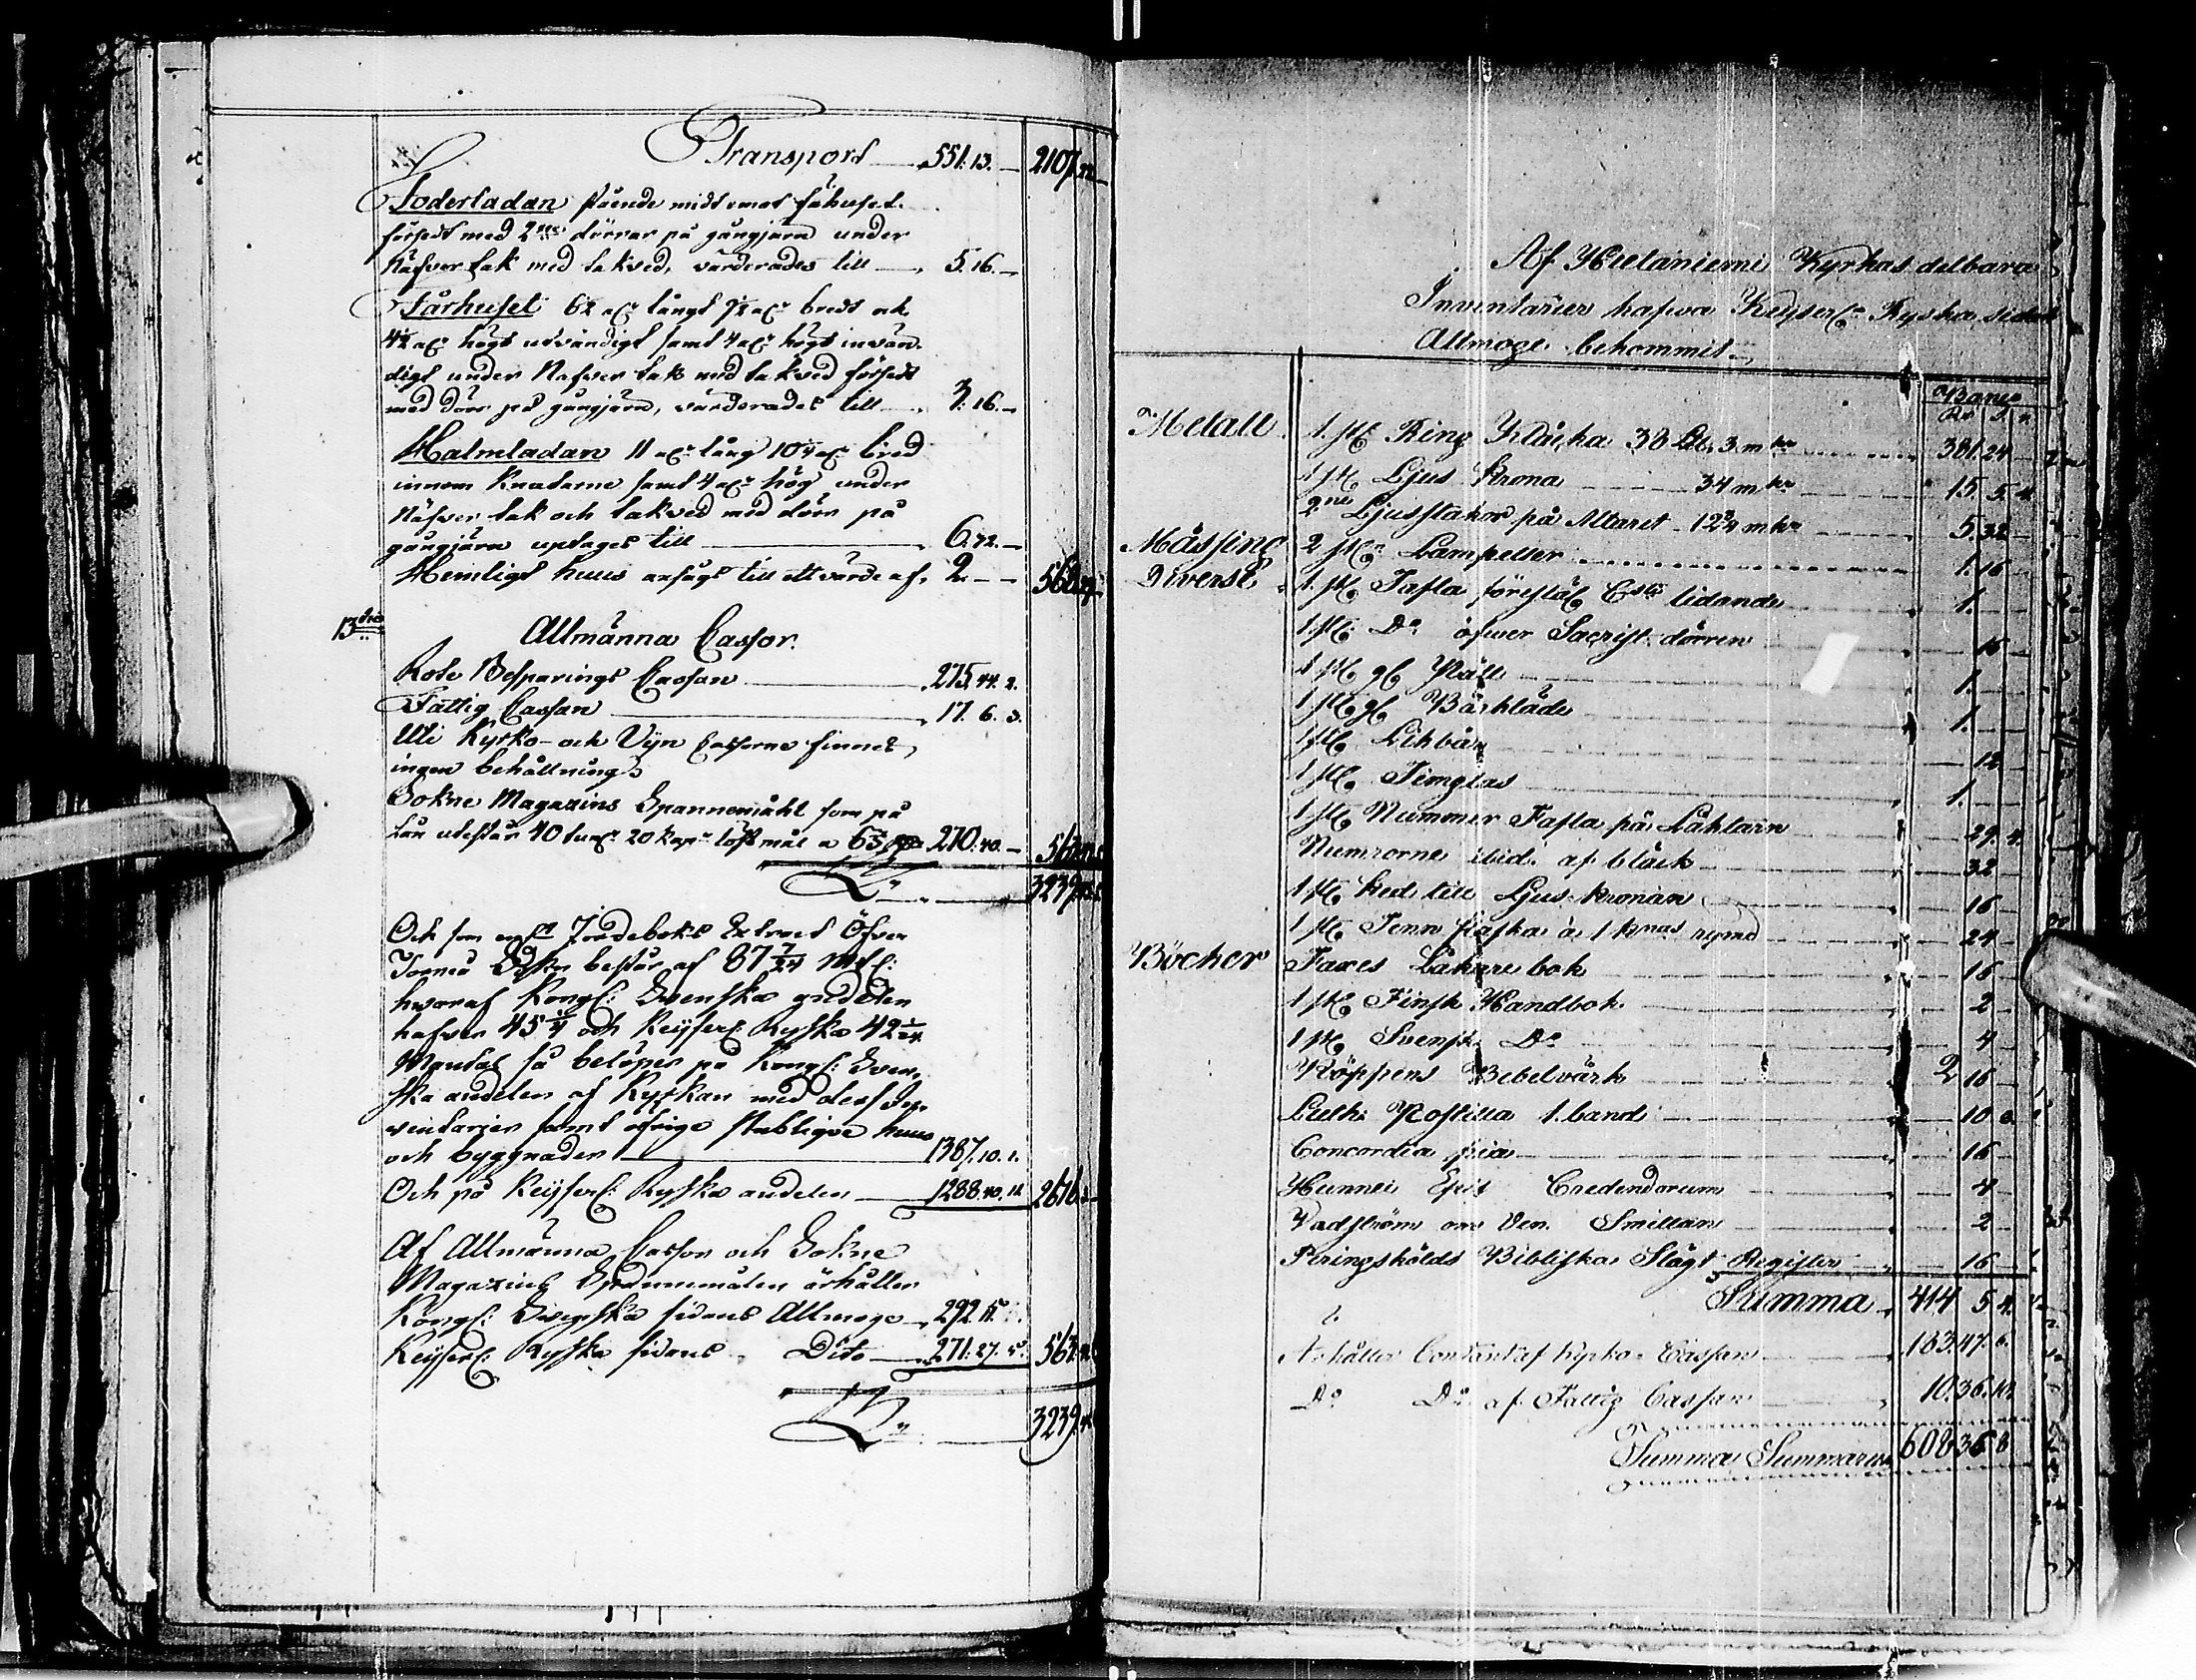 Transport 551. 13. — 2107.
Foderladan stående midt emot fähuset
försedt med 2ne dörrar på gångjärn under
Näfver tak med takved, värderades till — 5. 16. —
Fårhuset 6½ al:r långt 7½ al:r bredt och
4½ al:r högt utvändigt samt 4 al:r högt invän-
digt under Näfver tak med takved försedt
med dörr på gångjärn, värderades till — 3. 16. —
Halmladan 11 al:r lång 10¼ al:r bred
innom Knutarne samt 4 al:r hög under
Näfver tak och takved med dörr på
gångjärn uptages till — 6. 32. —
Hemligt huus ansågs till ett värde af 2. — —
13de
Allmänna Cassor.
Rote Besparings Cassan — 275. 44. 2.
Fattig Cassan — 17. 6. 3.
Uti Kyrko- och Vijn Casserne finnes
ingen behållning
Sokne Magazins Spannemåhl som på
Lån utestår 40 tun:r 20 kap:r löst mål a 270. 40. —
S:a 3239
Och som Jordeboks Extract Öfver
Torneå Sokn består af 87 7/24 Mtl:
hvoraf Kongl: Svenska andelen
hafver 45¼ och Keijserl: Ryska 42 1/24
Mantal så belöper på Kongl: Sven-
ska andelen af Kyrkan med dess In-
ventarier samt öfrige Publique huus
och byggnader — 1387. 10. 1.
Och på Keijserl: Ryska andelen — 1288. 40. 11. 2676
Af Allmänna Cassor och Sokne
Magazins Spannemålen erhåller
Kongl: Svenska sidans Allmoge — 292. 15.
Keijserl: Ryska sidans Dito — 271. 27. 5. 563
S:a 3239
Af Hietaniemi Kyrkas delbara
Inventarier hafva Keijserl: Ryska sidans
Allmoge bekommit.
Banco
Metall 1 st: Ring Klåcka 38 Lt 3 mkr — 381. 24
1 st: Ljus Krona — 34 mkr — 15. 5. 4
2ne Ljusstakar på Altaret 12¾ mkr — 5. 32
Mässing 2 st:n Lampetter — 1. 16
Diverse 1 st: Tafla föreståle Csti lidande — 1. —
1 st: Do öfwer Sacrist. dörren — 16
1 st: gl Påll — 1. —
1 st: gl Bårkläde — 1. —
1 st: Likbår — 12
1 st: Timglas — 1. —
1 st: Nummer Tafla på Läktarn — 29. 4.
Numrorne ibid. af bläck — 32
1 st: Ked till Ljus-kronan — 16
1 st: Tenn flaska à 1 knas rymd — 24
Böcker Taxes Läkare bok — 16
1 st: Finsk Handbok — 2
1 st: Svensk Do — 4
Köppens Bibelvärk — 2 16
Luth: Postilla 1. band — 10 8
Concordia pia — 16
Hunnei Epit Credendorum — 4
Vadström om Ven. Smittan — 2
Peringskölds Bibliska Slägt Register — 16
Summa 414 5 4.
Erhåller Contant af Kyrko-Cassan — 183. 47. 6.
Do Do af Fattig Cassan — 10. 36. 10.
Summa Summarum 608 36 8